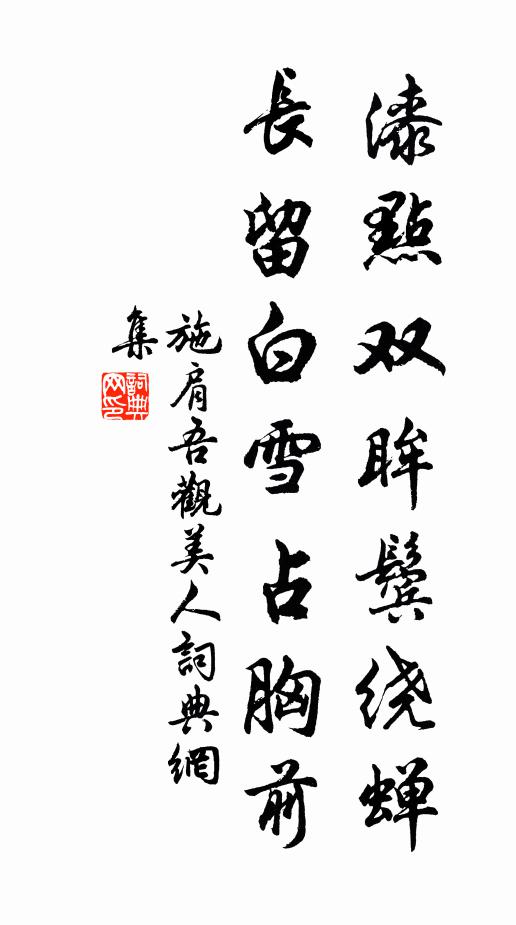 漆點双眸鬓绕蝉
長留白雪占胸前
施肩吾觀美人詞典網
集
詞典网印